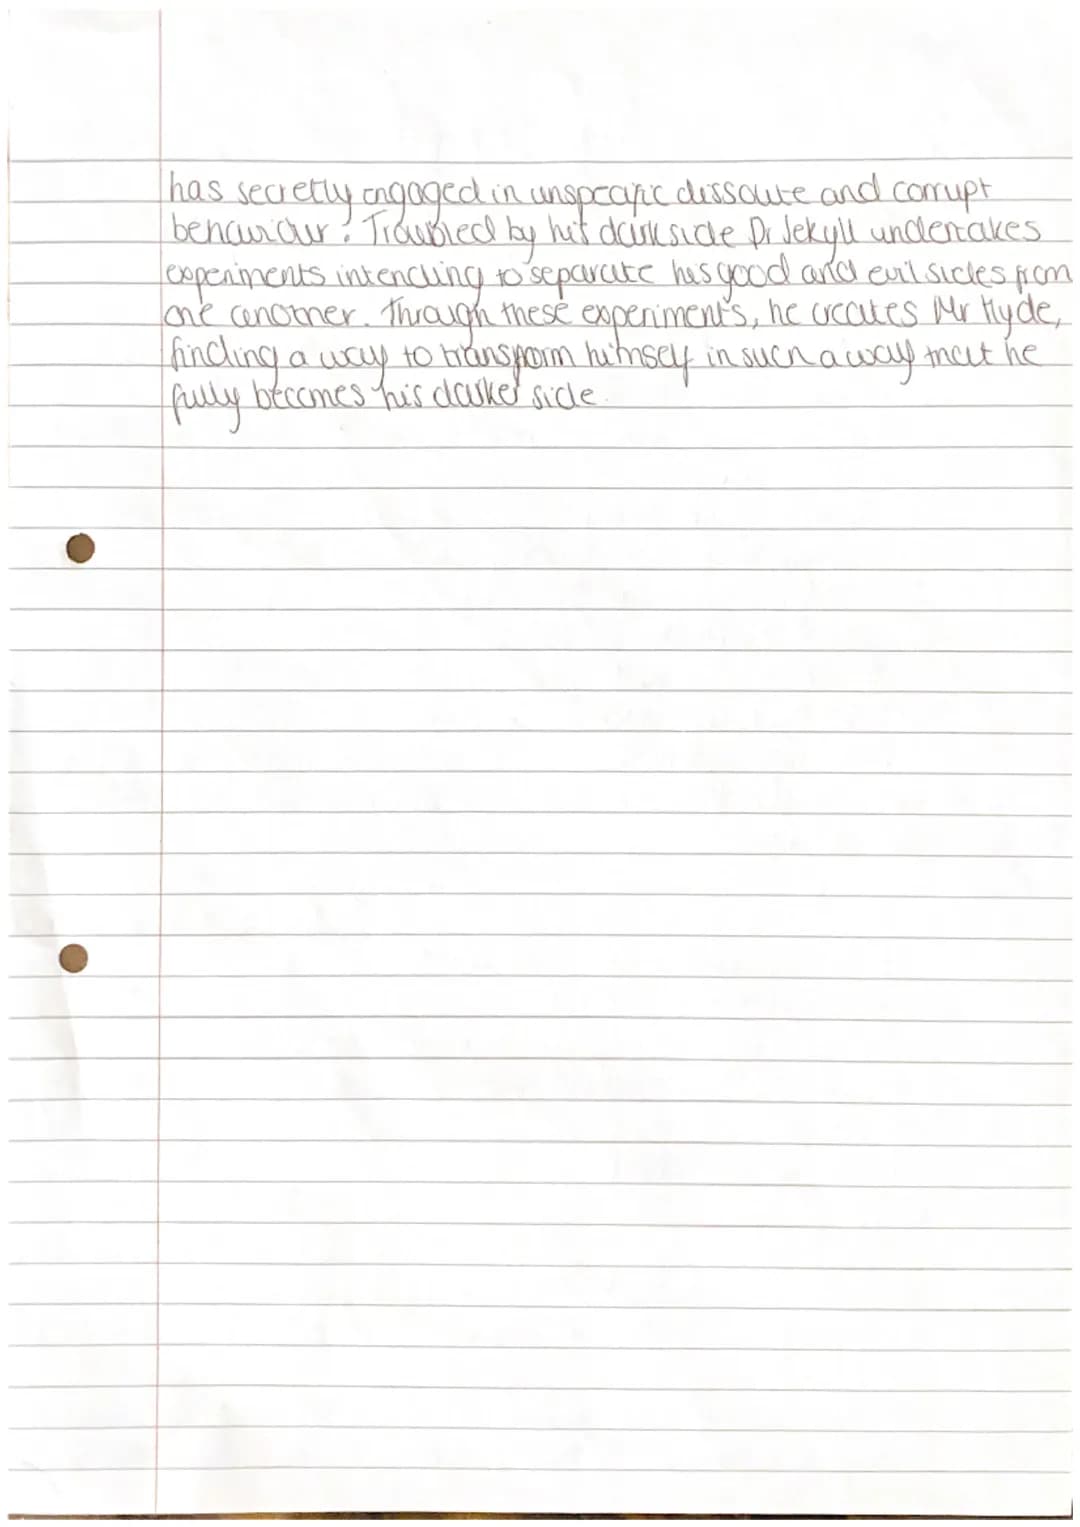 has secretly engaged in unspecific dissoute and corrupt
behaviour. Troubled by his dark side Dr Jekyll undertakes
experiments intending to separate his good and evil sides from
one another. Through these experiments, he creates Mr Hyde,
finding a way to transform himself in such a way that he
fully becomes his darker side.